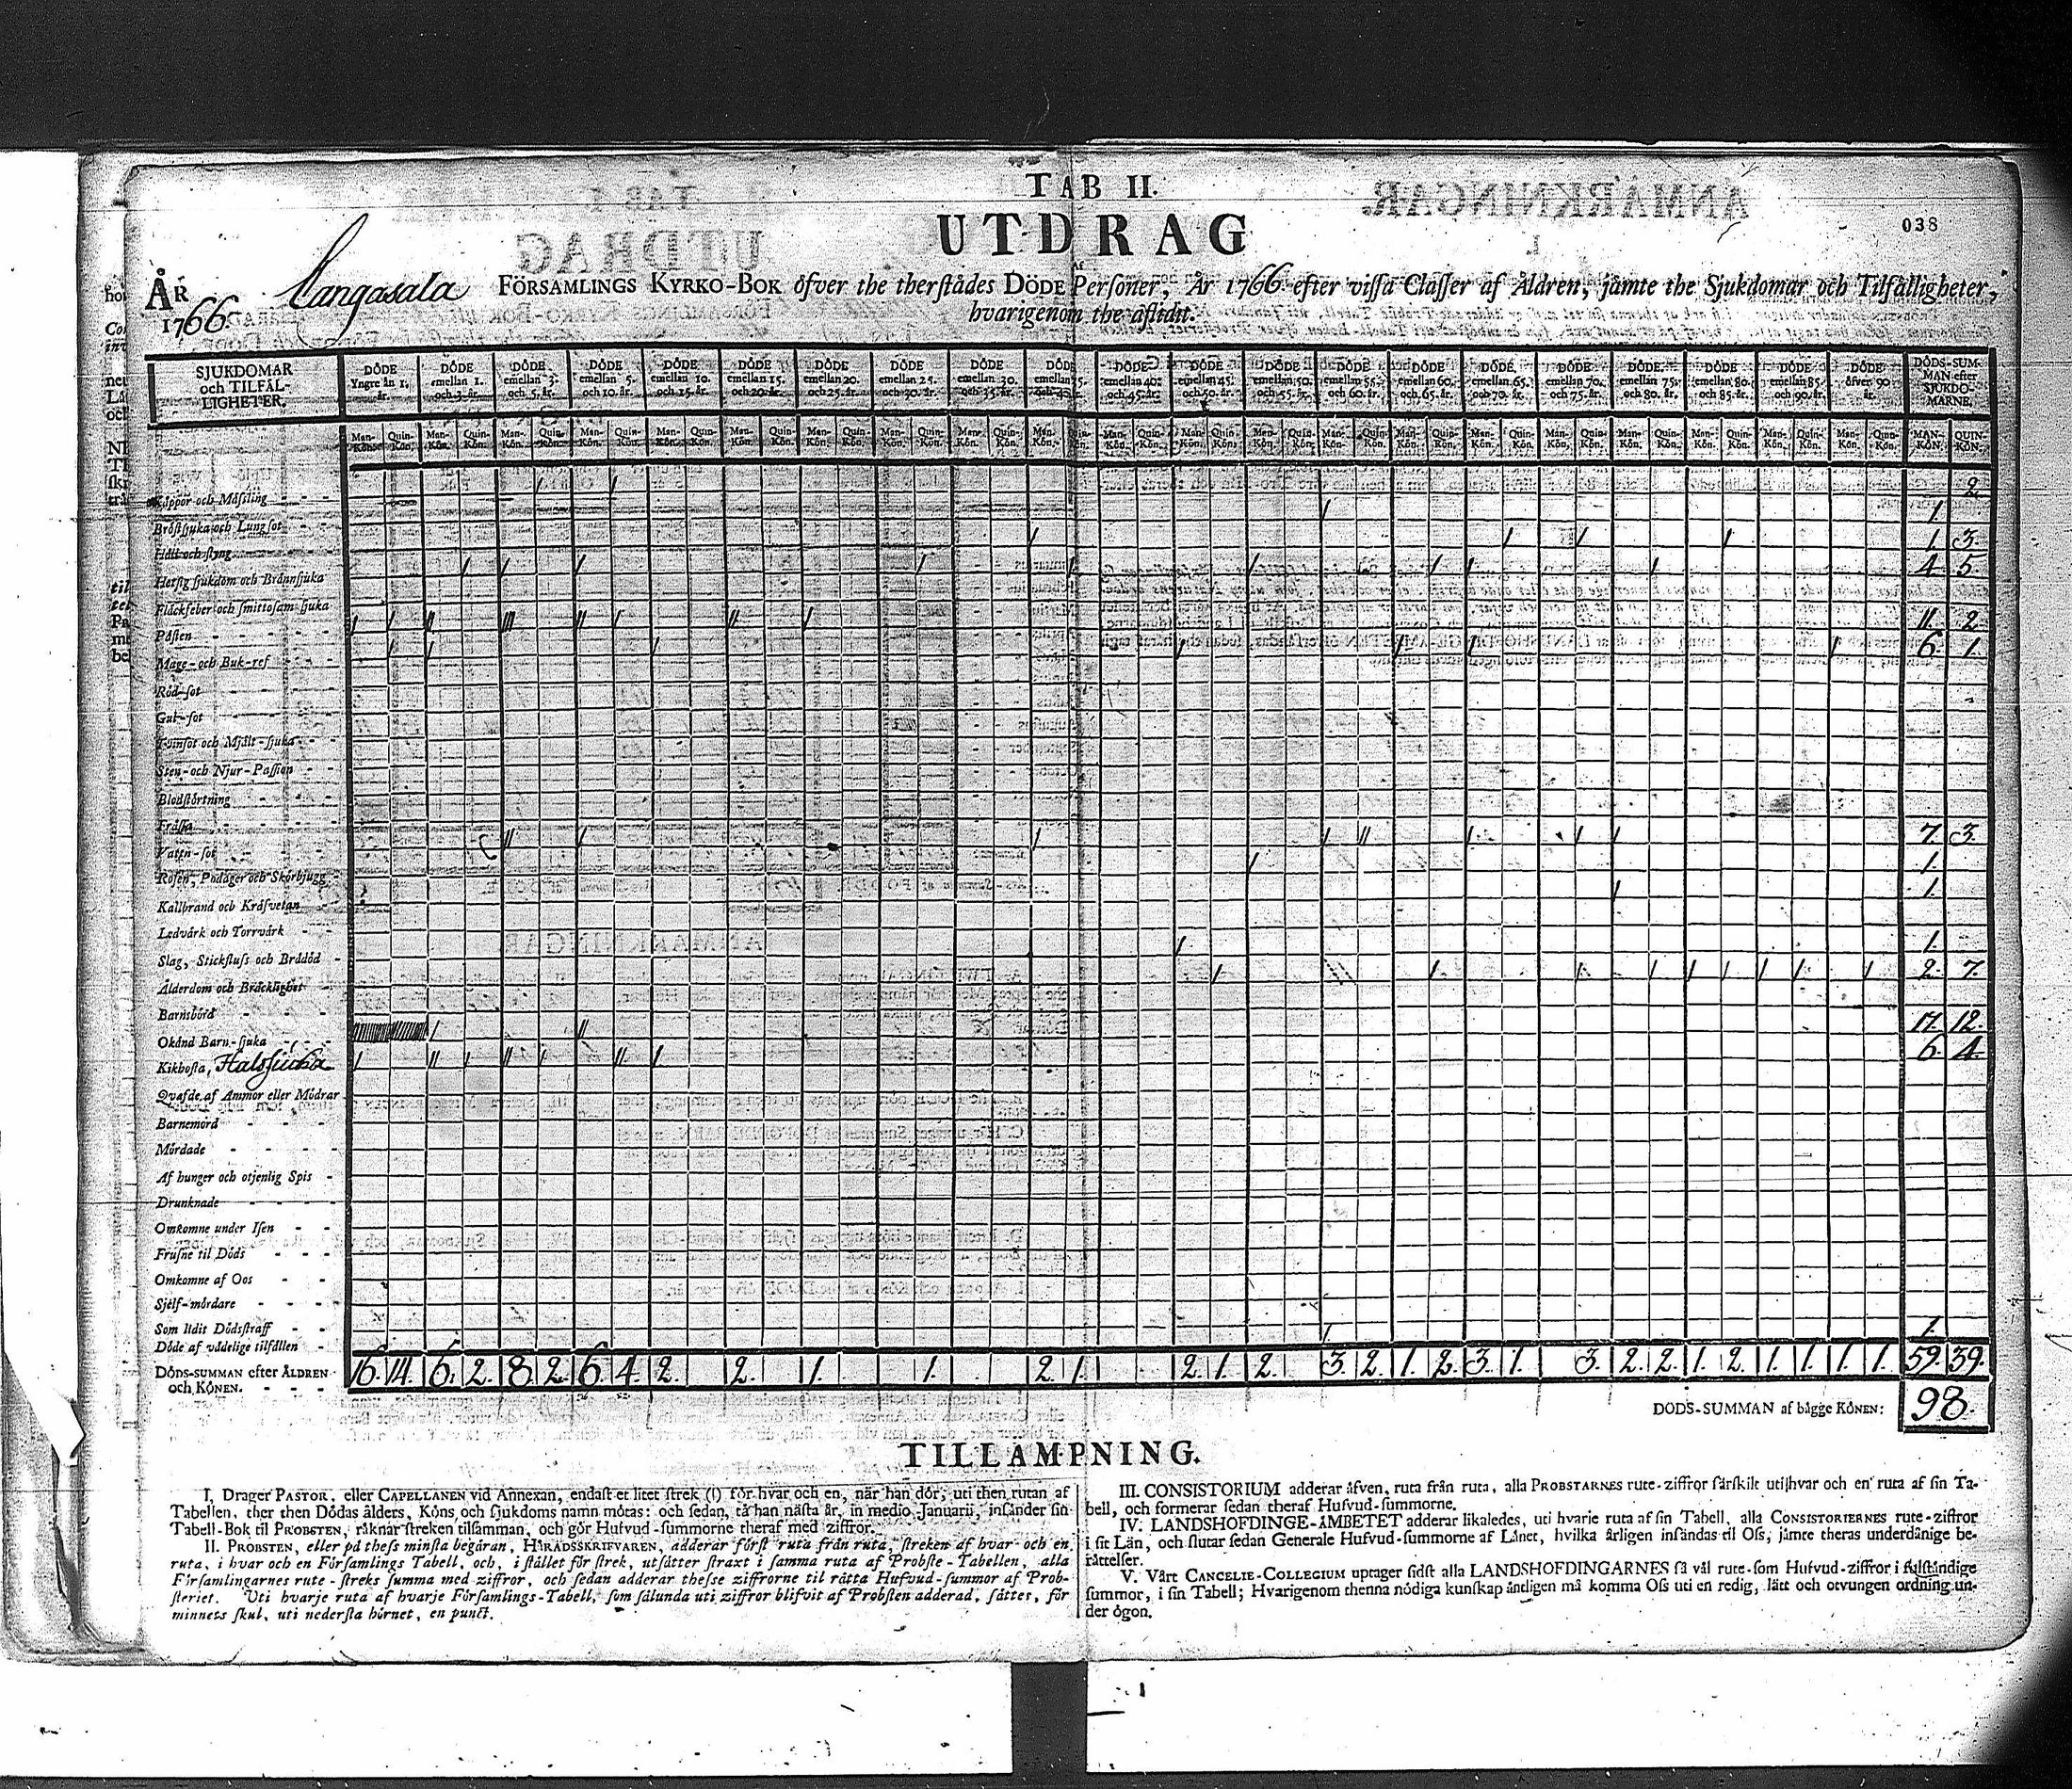 TAB II.
UTDRAG
038
ÅR 1766. Cangasala FÖRSAMLINGS KYRKO-BOK öfver the therstädes DÖDE Personer, År 1766 efter vissa Classer af Åldren, jämte the Sjukdomar och Tilfälligheter,
hvarigenom the aflidit.
SJUKDOMAR och TILFÄLLIGHETER.
DÖDE Yngre än 1. år.
DÖDE emellan 1. och 3. år.
DÖDE emellan 3. och 5. år.
DÖDE emellan 5. och 10. år.
DÖDE emellan 10. och 15. år.
DÖDE emellan 15. och 20. år.
DÖDE emellan 20. och 25. år.
DÖDE emellan 25. och 30. år.
DÖDE emellan 30. och 35. år.
DÖDE
DÖDE emellan 40. och 45. år.
DÖDE emellan 45. och 50. år.
DÖDE emellan 50. och 55. år.
DÖDE emellan 55. och 60. år.
DÖDE emellan 60. och 65. år.
DÖDE emellan 65. och 70. år.
DÖDE emellan 70. och 75. år.
DÖDE emellan 75. och 80. år.
DÖDE emellan 80. och 85. år.
DÖDE emellan 85. och 90. år.
DÖDE öfver 90 år.
DÖDS-SUMMAN efter SJUKDOMARNE.
Man-Kön. Quin-Kön. Man-Kön. Quin-Kön. Man-Kön. Quin-Kön. Man-Kön. Quin-Kön. Man-Kön. Quin-Kön. Man-Kön. Quin-Kön. Man-Kön. Quin-Kön. Man-Kön. Quin-Kön. Man-Kön. Quin-Kön. Man-Kön. Quin-Kön. Man-Kön. Quin-Kön. Man-Kön. Quin-Kön. Man-Kön. Quin-Kön. Man-Kön. Quin-Kön. Man-Kön. Quin-Kön. Man-Kön. Quin-Kön. Man-Kön. Quin-Kön. Man-Kön. Quin-Kön. Man-Kön. Quin-Kön. Man-Kön. Quin-Kön. Man-Kön. Quin-Kön. MAN-KÖN. QUIN-KÖN.
Koppor och Mässling / / 2.
Bröstsjuka och Lungsot / 1.
Håll och styng / / / / 1. 3.
Hetsig sjukdom och Brännsjuka / / / / / / / / / 4. 5.
Fläckfeber och smittosam sjuka / / // /// // / // / 11. 2.
Pästen / / / / / / / 6. 1.
Mage- och Buk-ref
Röd-sot
Gul-sot
Tvinsot och Mjält-sjuka
Sten- och Njur-Passion
Blodstörtning
Frässa
Vatten-sot // / / / // / / / 7. 3.
Rosen, Podager och Skörbjugg / 1.
Kallbrand och Kräfvetan / 1.
Ledvärk och Torrvärk
Slag, Stickfluss och Brådöd / 1.
Ålderdom och Bräcklighet / / / / / / / / / 2. 7.
Barnsbörd
Okänd Barn-sjuka / // 17. 12.
Kikhosta, Halssjucka / // / // / // / 6. 4.
Qvafde af Ammor eller Mödrar
Barnemord
Mördade
Af hunger och otjenlig Spis
Drunknade
Omkomne under Isen
Frusne til Döds
Omkomne af Oos
Sjelf-mördare
Som lidit Dödsstraff
Döde af vådelige tilfällen / 1.
DÖDS-SUMMAN efter ÅLDREN och KÖNEN. 16. 14. 6. 2. 8. 2. 6. 4. 2. 2. 1. 1. 2. 1. 2. 1. 2. 3. 2. 1. 2. 3. 1. 3. 2. 2. 1. 2. 1. 1. 1. 1. 59. 39.
DÖDS-SUMMAN af bägge KÖNEN: 98.
TILLÄMPNING.
I. Drager PASTOR, eller CAPELLANEN vid Annexan, endast et litet strek (l) för hvar och en, när han dör, uti then rutan af
Tabellen, ther then Dödas ålders, Köns och sjukdoms namn mötas: och sedan, tå han nästa år, in medio Januarii, insänder sin
Tabell-Bok til PROBSTEN, räknar streken tilsamman, och gör Hufvud-summorne theraf med ziffror.
II. PROBSTEN, eller på thess minsta begäran, HÄRADSSKRIFVAREN, adderar först ruta från ruta, streken af hvar och en
ruta, i hvar och en Församlings Tabell, och, i stället för strek, utsätter straxt i samma ruta af Probste-Tabellen, alla
Församlingarnes rute-streks summa med ziffror, och sedan adderar thesse ziffrorne til rätta Hufvud-summor af Prob-
steriet. Uti hvarje ruta af hvarje Församlings-Tabell, som sålunda uti ziffror blifvit af Probsten adderad, sättes, för
minnets skul, uti nedersta hörnet, en punct.
III. CONSISTORIUM adderar äfven, ruta från ruta, alla PROBSTARNES rute-ziffror särskilt uti hvar och en ruta af sin Ta-
bell, och formerar sedan theraf Hufvud-summorne.
IV. LANDSHÖFDINGE-ÄMBETET adderar likaledes, uti hvarje ruta af sin Tabell, alla CONSISTORIERNES rute-ziffror
i sit Län, och slutar sedan Generale Hufvud-summorne af Länet, hvilka årligen insändas til Oss, jämte theras underdånige be-
rättelser.
V. Vårt CANCELIE-COLLEGIUM uptager sidst alla LANDSHÖFDINGARNES så väl rute-som Hufvud-ziffror i fulständige
summor, i sin Tabell; Hvarigenom thenna nödiga kunskap äntligen må komma Oss uti en redig, lätt och otvungen ordning un-
der ögon.